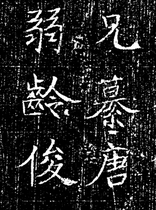 兄摹唐
弱齡俊